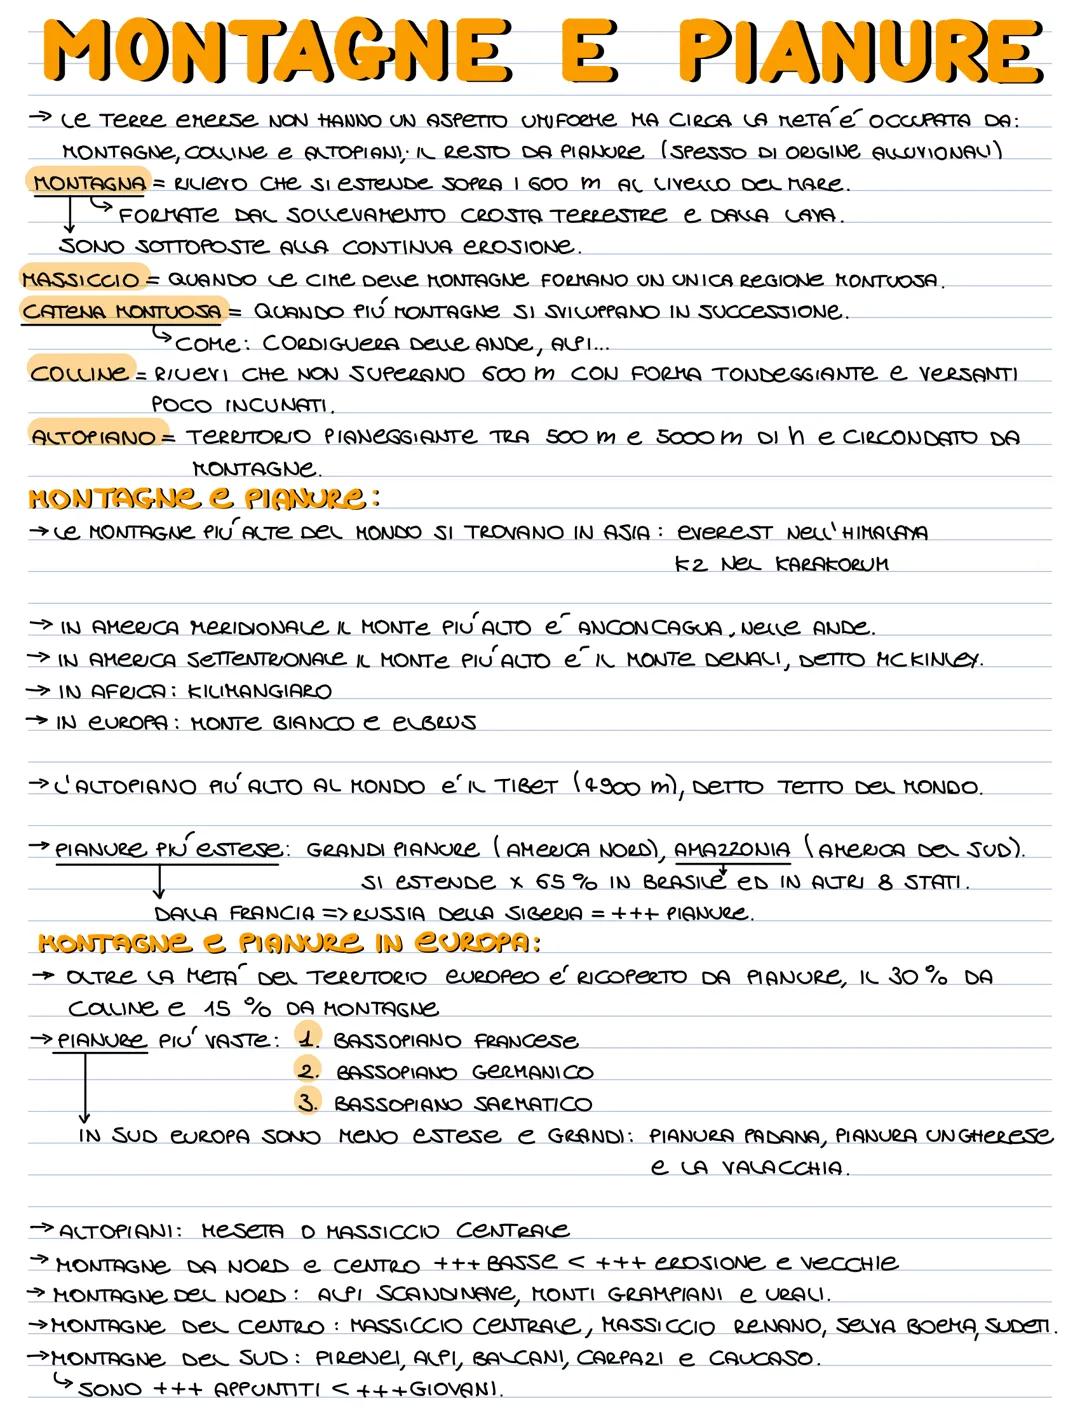 MONTAGNE E PIANURE
→ LE TERRE EMERSE NON HANNO UN ASPETTO UNIFORME MA CIRCA LA METÁ É OCCUPATA DA:
MONTAGNE, COLLINE E ALTOPIANI; IL RESTO DA PIANURE (SPESSO DI ORIGINE ALLUVIONALI)
MONTAGNA = RILIEVO CHE SI ESTENDE SOPRA I 600 m AL LIVELLO DEL MARE.
↳ FORMATE DAL SOLLEVAMENTO CROSTA TERRESTRE E DALLA LAVA.
SONO SOTTOPOSTE ALLA CONTINUA EROSIONE.
MASSICCIO = QUANDO LE CIME DELLE MONTAGNE FORMANO UN UNICA REGIONE MONTUOSA.
CATENA MONTUOSA = QUANDO PIÚ MONTAGNE SI SVILUPPANO IN SUCCESSIONE.
↳ COME: CORDIGLIERA DELLE ANDE, ALPI...
COLLINE = RILIEVI CHE NON SUPERANO 600 m CON FORMA TONDEGGIANTE E VERSANTI
POCO INCLINATI.
ALTOPIANO = TERRITORIO PIANEGGIANTE TRA 500 m E 5000 m DI h E CIRCONDATO DA
MONTAGNE.
MONTAGNE E PIANURE:
→ LE MONTAGNE PIÚ ALTE DEL MONDO SI TROVANO IN ASIA: EVEREST NELL'HIMALAYA
K2 NEL KARAKORUM
→ IN AMERICA MERIDIONALE IL MONTE PIÚ ALTO É ANCONCAGUA, NELLE ANDE.
→ IN AMERICA SETTENTRIONALE IL MONTE PIÚ ALTO É IL MONTE DENALI, DETTO MCKINLEY.
→ IN AFRICA: KILIMANGIARO
→ IN EUROPA: MONTE BIANCO E ELBRUS
→ L'ALTOPIANO PIÚ ALTO AL MONDO É IL TIBET (4900 m), DETTO TETTO DEL MONDO.
→ PIANURE PIÚ ESTESE: GRANDI PIANURE (AMERICA NORD), AMAZZONIA (AMERICA DEL SUD).
SI ESTENDE X 65% IN BRASILE ED IN ALTRI 8 STATI.
DALLA FRANCIA => RUSSIA DELLA SIBERIA = +++ PIANURE.
MONTAGNE E PIANURE IN EUROPA:
→ OLTRE LA METÁ DEL TERRITORIO EUROPEO É RICOPERTO DA PIANURE, IL 30% DA
COLLINE E 15 % DA MONTAGNE
→ PIANURE PIÚ VASTE: 1. BASSOPIANO FRANCESE
2. BASSOPIANO GERMANICO
3. BASSOPIANO SARMATICO
IN SUD EUROPA SONO MENO ESTESE E GRANDI: PIANURA PADANA, PIANURA UNGHERESE
E LA VALACCHIA.
→ ALTOPIANI: MESETA O MASSICCIO CENTRALE
→ MONTAGNE DA NORD E CENTRO +++ BASSE < +++ EROSIONE E VECCHIE
→ MONTAGNE DEL NORD: ALPI SCANDINAVE, MONTI GRAMPIANI E URALI.
→ MONTAGNE DEL CENTRO: MASSICCIO CENTRALE, MASSICCIO RENANO, SELVA BOEMA, SUDETI.
→ MONTAGNE DEL SUD: PIRENEI, ALPI, BALCANI, CARPAZI E CAUCASO.
↳ SONO +++ APPUNTITI < +++ GIOVANI.